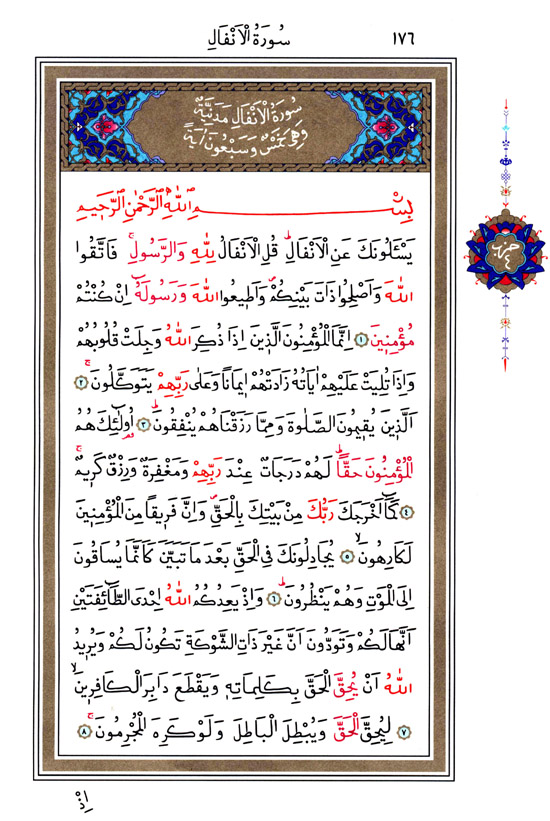 ١٧٦
سُورَةُ الْاَنْفَالِ
سُورَةُ الْاَنْفَالِ مَدَنِيَّةٌ
وَهِيَ خَمْسٌ وَسَبْعُونَ اٰيَةً
حزب
٤
بِسْمِ اللّٰهِ الرَّحْمٰنِ الرَّحٖيمِ
يَسْـَٔلُونَكَ عَنِ الْاَنْفَالِۜ قُلِ الْاَنْفَالُ لِلّٰهِ وَالرَّسُولِۚ فَاتَّقُوا
اللّٰهَ وَاَصْلِحُوا ذَاتَ بَيْنِكُمْۖ وَاَطٖيعُوا اللّٰهَ وَرَسُولَهُٓ اِنْ كُنْتُمْ
مُؤْمِنٖينَ ﴿١﴾ اِنَّمَا الْمُؤْمِنُونَ الَّذٖينَ اِذَا ذُكِرَ اللّٰهُ وَجِلَتْ قُلُوبُهُمْ
وَاِذَا تُلِيَتْ عَلَيْهِمْ اٰيَاتُهُ زَادَتْهُمْ اٖيمَانًا وَعَلٰى رَبِّهِمْ يَتَوَكَّلُونَۚ ﴿٢﴾
اَلَّذٖينَ يُقٖيمُونَ الصَّلٰوةَ وَمِمَّا رَزَقْنَاهُمْ يُنْفِقُونَۜ ﴿٣﴾ اُولٰٓئِكَ هُمُ
الْمُؤْمِنُونَ حَقًّاۜ لَهُمْ دَرَجَاتٌ عِنْدَ رَبِّهِمْ وَمَغْفِرَةٌ وَرِزْقٌ كَرٖيمٌۚ
﴿٤﴾ كَمَٓا اَخْرَجَكَ رَبُّكَ مِنْ بَيْتِكَ بِالْحَقِّۖ وَاِنَّ فَرٖيقًا مِنَ الْمُؤْمِنٖينَ
لَكَارِهُونَۙ ﴿٥﴾ يُجَادِلُونَكَ فِي الْحَقِّ بَعْدَ مَا تَبَيَّنَ كَاَنَّمَا يُسَاقُونَ
اِلَى الْمَوْتِ وَهُمْ يَنْظُرُونَۜ ﴿٦﴾ وَاِذْ يَعِدُكُمُ اللّٰهُ اِحْدَى الطَّٓائِفَتَيْنِ
اَنَّهَا لَكُمْ وَتَوَدُّونَ اَنَّ غَيْرَ ذَاتِ الشَّوْكَةِ تَكُونُ لَكُمْ وَيُرٖيدُ
اللّٰهُ اَنْ يُحِقَّ الْحَقَّ بِكَلِمَاتِهٖ وَيَقْطَعَ دَابِرَ الْكَافِرٖينَۙ
﴿٧﴾ لِيُحِقَّ الْحَقَّ وَيُبْطِلَ الْبَاطِلَ وَلَوْ كَرِهَ الْمُجْرِمُونَۚ ﴿٨﴾
اِذْ